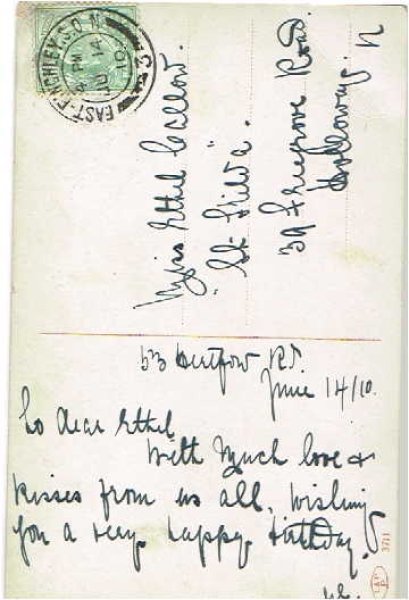 EAST FINCHLEY. S.O. N.
PM
JU 14
10
3
Miss Ethel Callow.
"St. Hilda".
39 Freegrove Road
Holloway. N
53 Hertford Rd.
June 14/10.
To dear Ethel
With much love &
kisses from us all. Wishing
you a very happy birthday.
3711